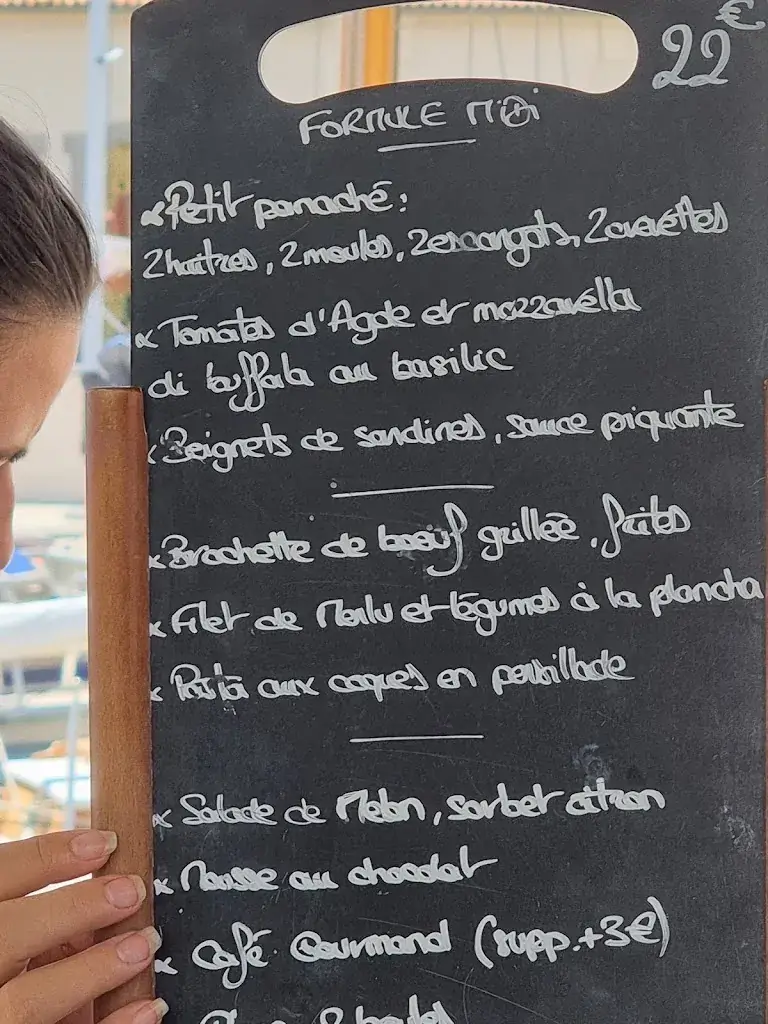 22€
FORMULE MIDI
Petit panaché:
2 huîtres, 2 moules, 2 escargots, 2 crevettes
Tomates d'Agde et mozzarella
di buffala au basilic
Beignets de sardines, sauce piquante
Brochette de boeuf grillée, frites
Filet de Merlu et légumes à la plancha
Pasta aux coques en persillade
Salade de Melon, sorbet citron
Mousse au chocolat
Café Gourmand (supp.+3€)
2 boules